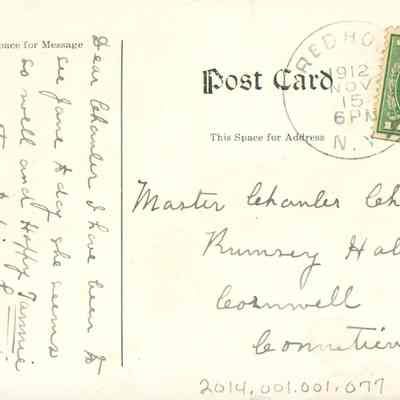 pace for Message
Dear Chanler I have been to
see Jane today she seems
so well and Happy
Post Card
This Space for Address
RED HO
1912
NOV
15
6PM
N.Y.
Master Chanler Ch
Rumsey Hal
Cornwell
Connetic
2014.001.001.077